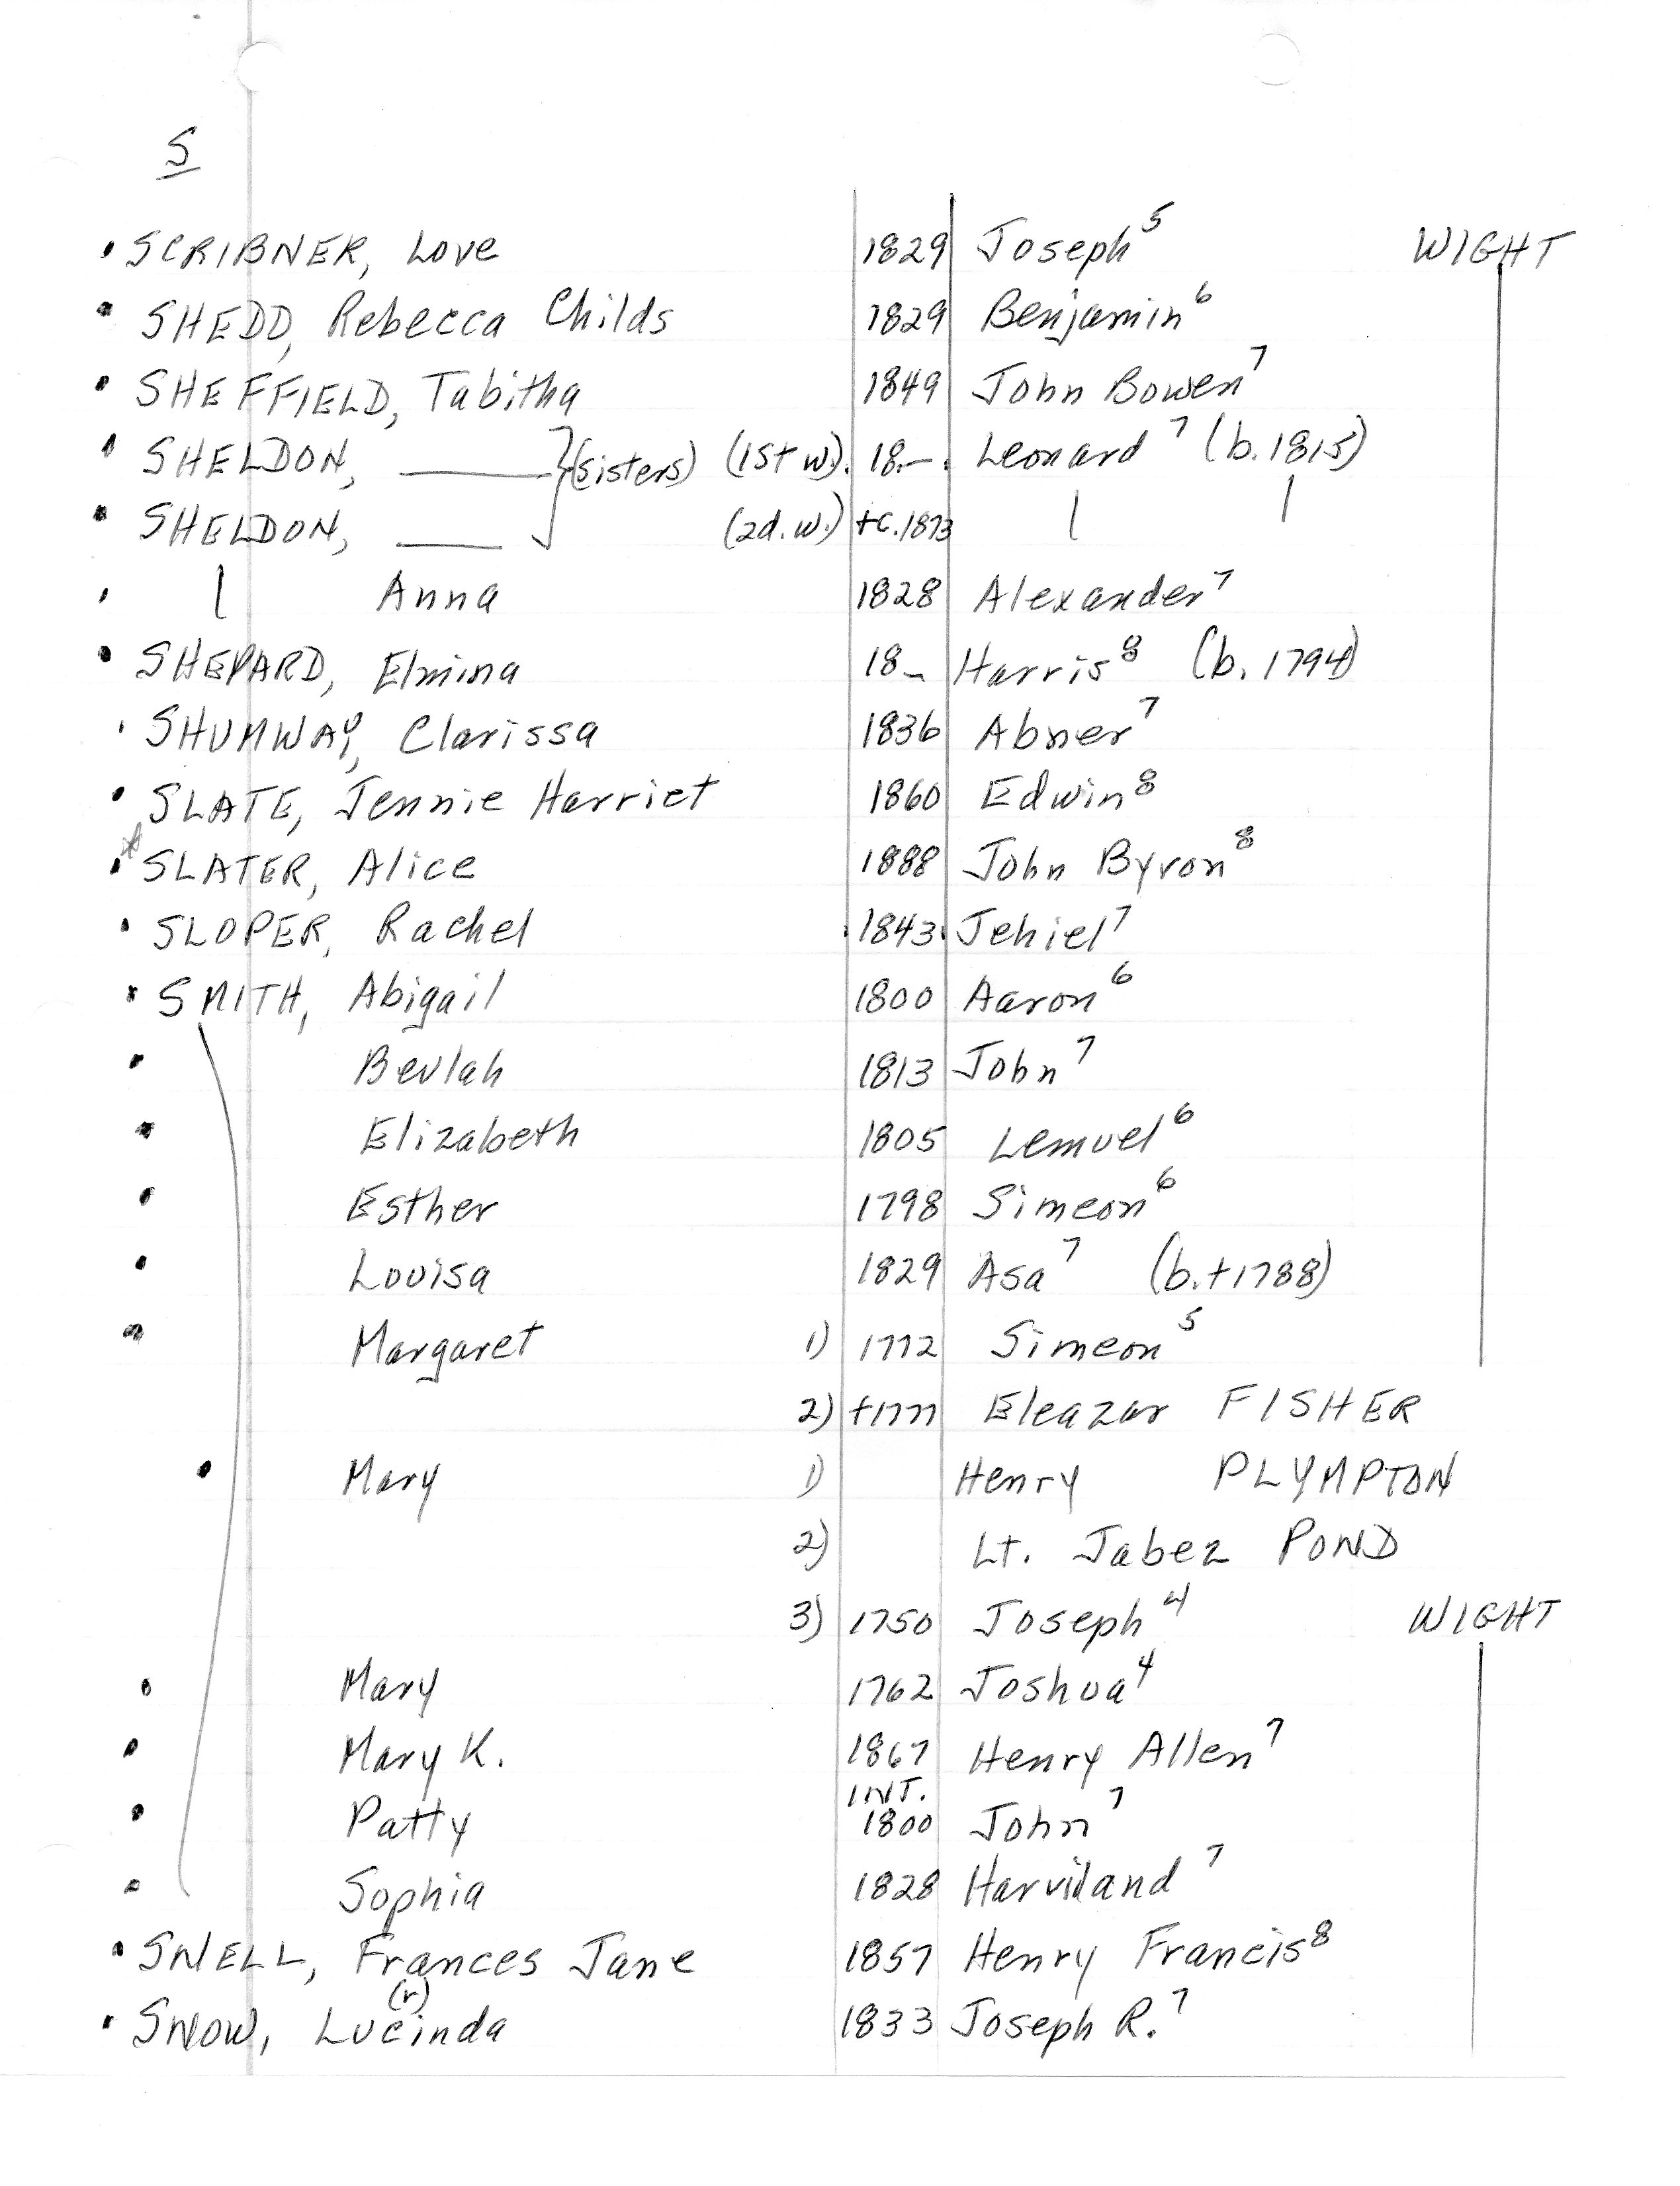 S
• SCRIBNER, Love 1829 Joseph⁵ WIGHT
• SHEDD, Rebecca Childs 1829 Benjamin⁶
• SHEFFIELD, Tabitha 1849 John Bowen⁷
• SHELDON, ____ } (sisters) (1st w.) 18-- Leonard⁷ (b. 1815)
• SHELDON, ____ (2d. w.) +c.1873
• Anna 1828 Alexander⁷
• SHEPARD, Elmina 18_ Harris⁸ (b. 1794)
• SHUMWAY, Clarissa 1836 Abner⁷
• SLATE, Jennie Harriet 1860 Edwin⁸
*
• SLATER, Alice 1888 John Byron⁸
• SLOPER, Rachel 1843 Jehiel⁷
• SMITH, Abigail 1800 Aaron⁶
• Beulah 1813 John⁷
• Elizabeth 1805 Lemuel⁶
• Esther 1798 Simeon⁶
• Louisa 1829 Asa⁷ (b. +1788)
• Margaret 1) 1772 Simeon⁵
2) +1777 Eleazar FISHER
• Mary 1) Henry PLYMPTON
2) Lt. Jabez POND
3) 1750 Joseph⁴ WIGHT
• Mary 1762 Joshua⁴
• Mary K. 1867 Henry Allen⁷
INT.
• Patty 1800 John⁷
• Sophia 1828 Harviland⁷
• SNELL, Frances Jane 1857 Henry Francis⁸
(r)
• SNOW, Lucinda 1833 Joseph R.⁷